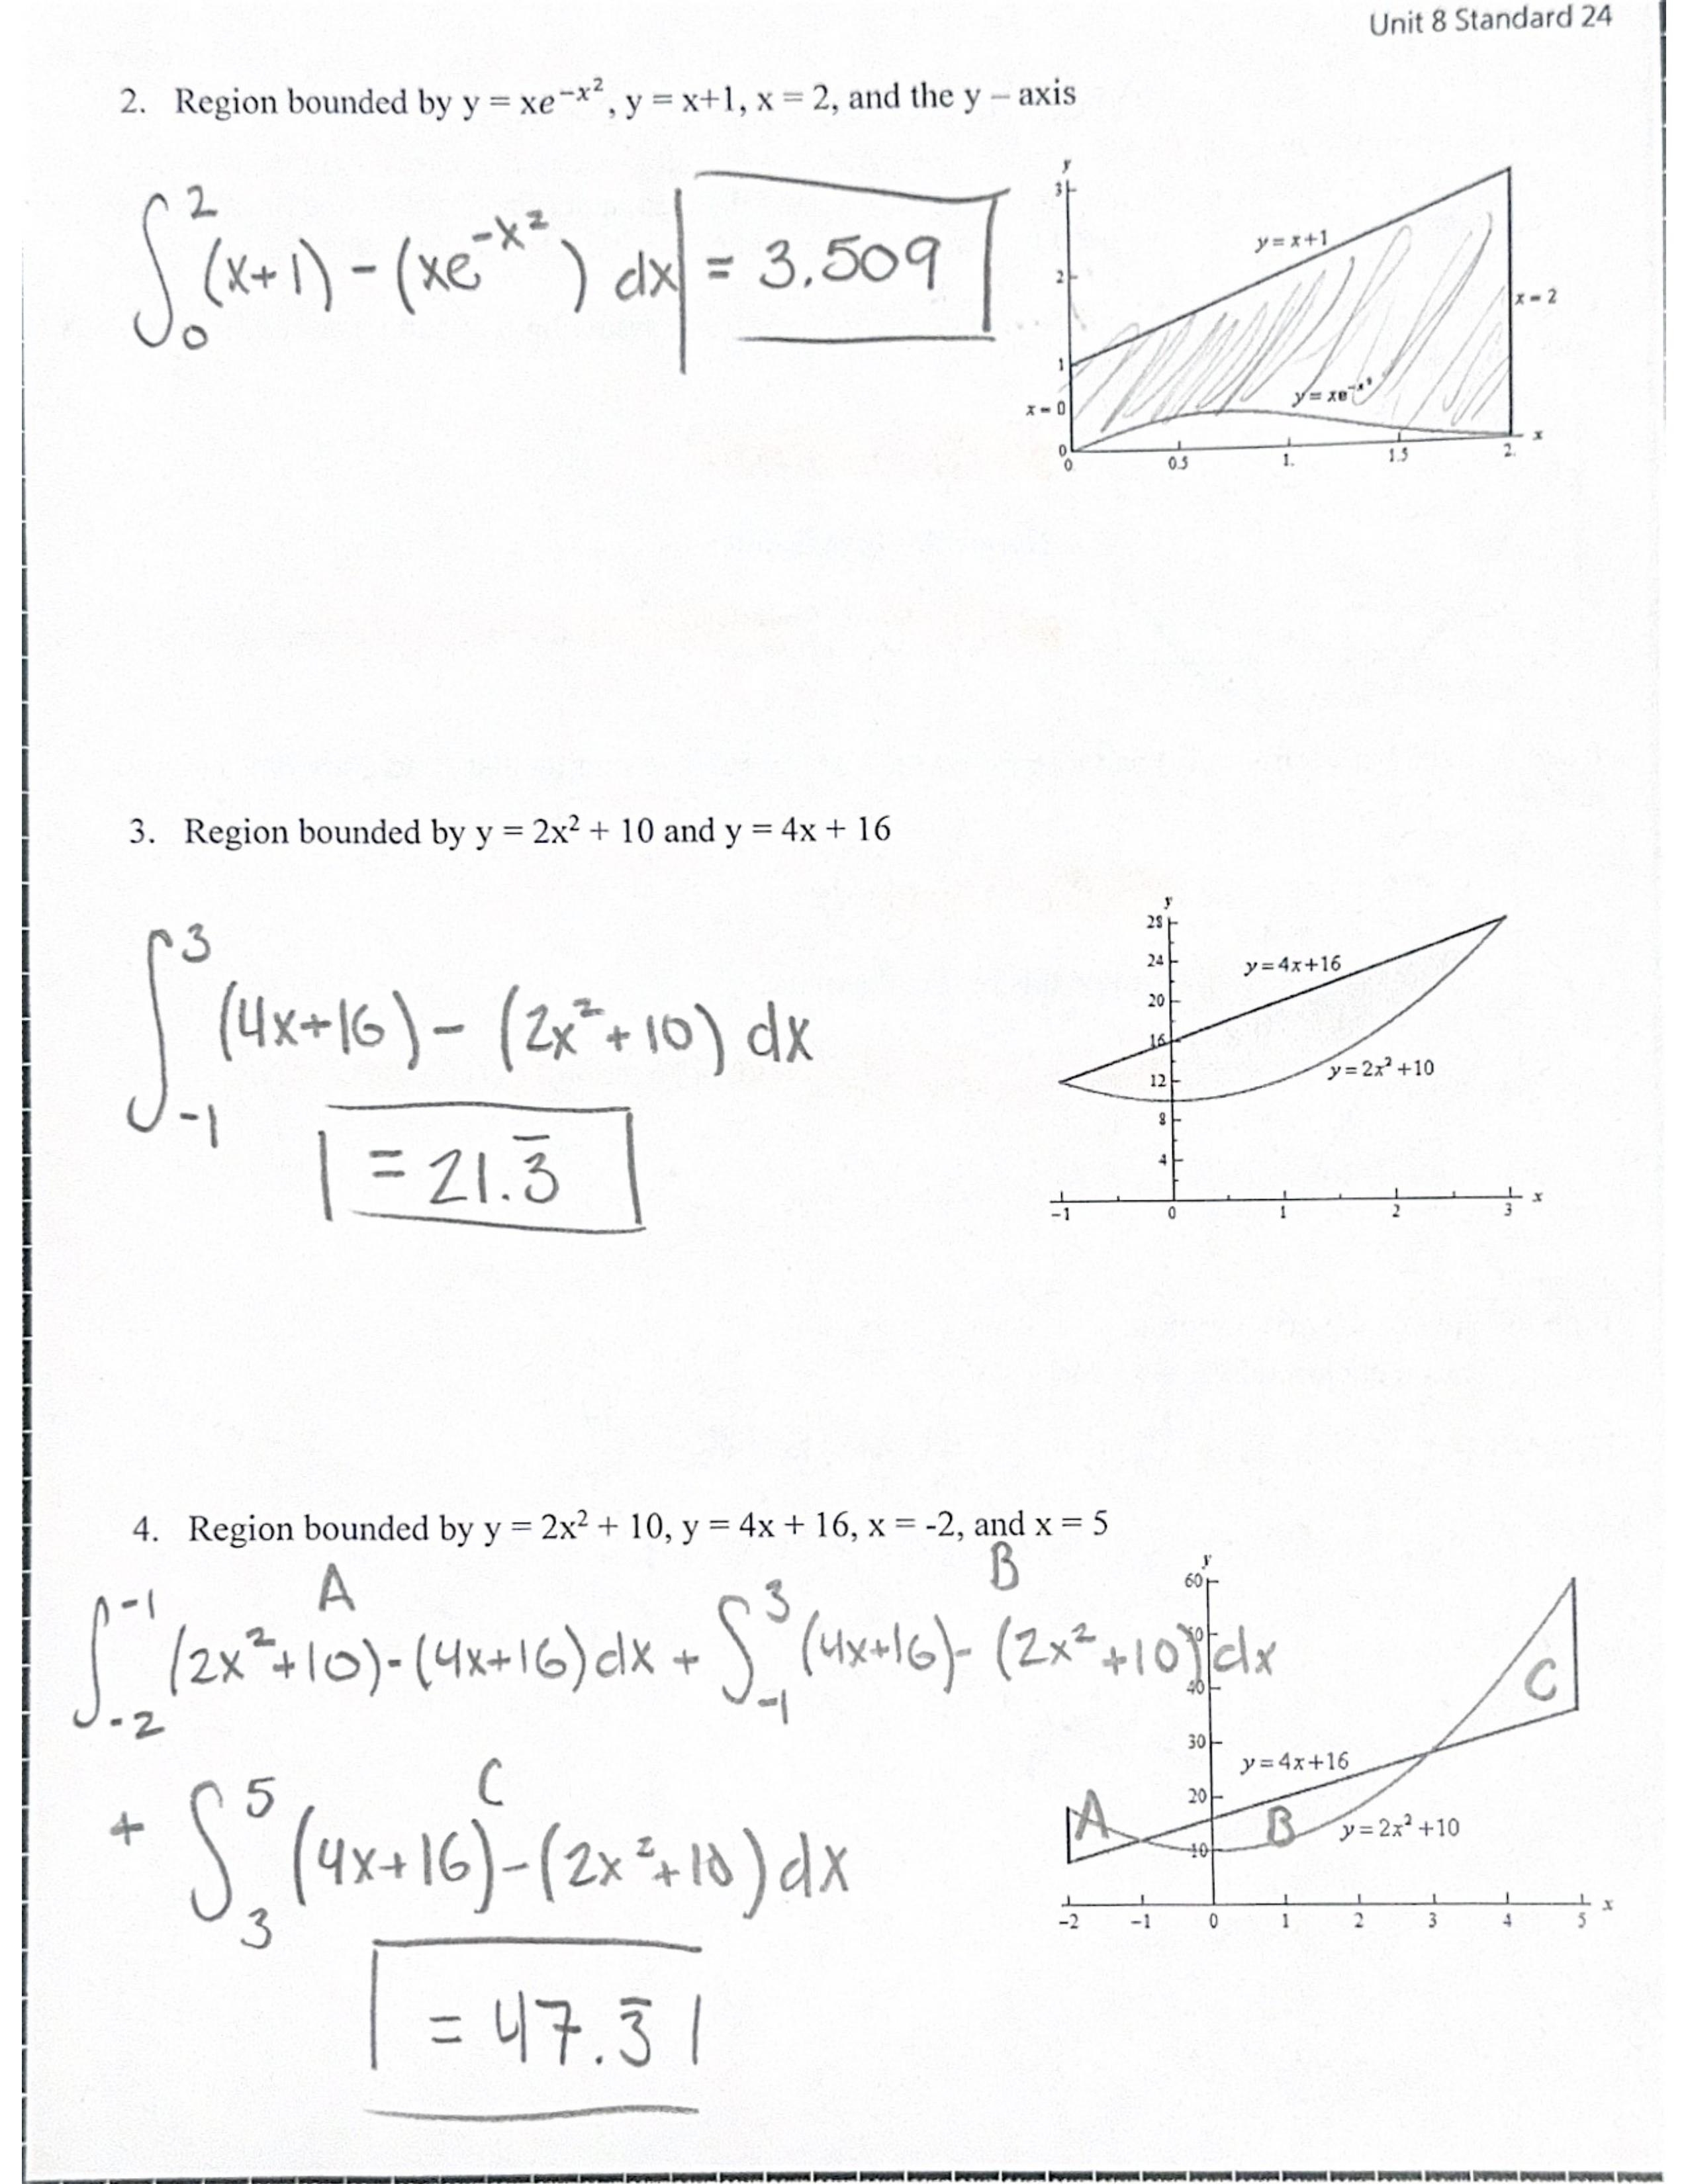 Unit 8 Standard 24
2. Region bounded by y = xe^{-x²}, y = x+1, x = 2, and the y – axis
∫₀² (x+1) - (xe^{-x²}) dx = 3.509
y
3
y = x+1
2
x = 2
1
y = xe^{-x²}
x = 0
0
x
0 0.5 1. 1.5 2.
3. Region bounded by y = 2x² + 10 and y = 4x + 16
∫₋₁³ (4x+16) - (2x²+10) dx
= 21.3̅
y
28
24
y = 4x+16
20
16
y = 2x²+10
12
8
4
x
-1 0 1 2 3
4. Region bounded by y = 2x² + 10, y = 4x + 16, x = -2, and x = 5
A B
∫₋₂⁻¹ (2x²+10) - (4x+16) dx + ∫₋₁³ (4x+16) - (2x²+10) dx
C
+ ∫₃⁵ (4x+16) - (2x²+10) dx
= 47.3̅
y
60
50
C
40
30
y = 4x+16
20
A B
y = 2x²+10
10
x
-2 -1 0 1 2 3 4 5